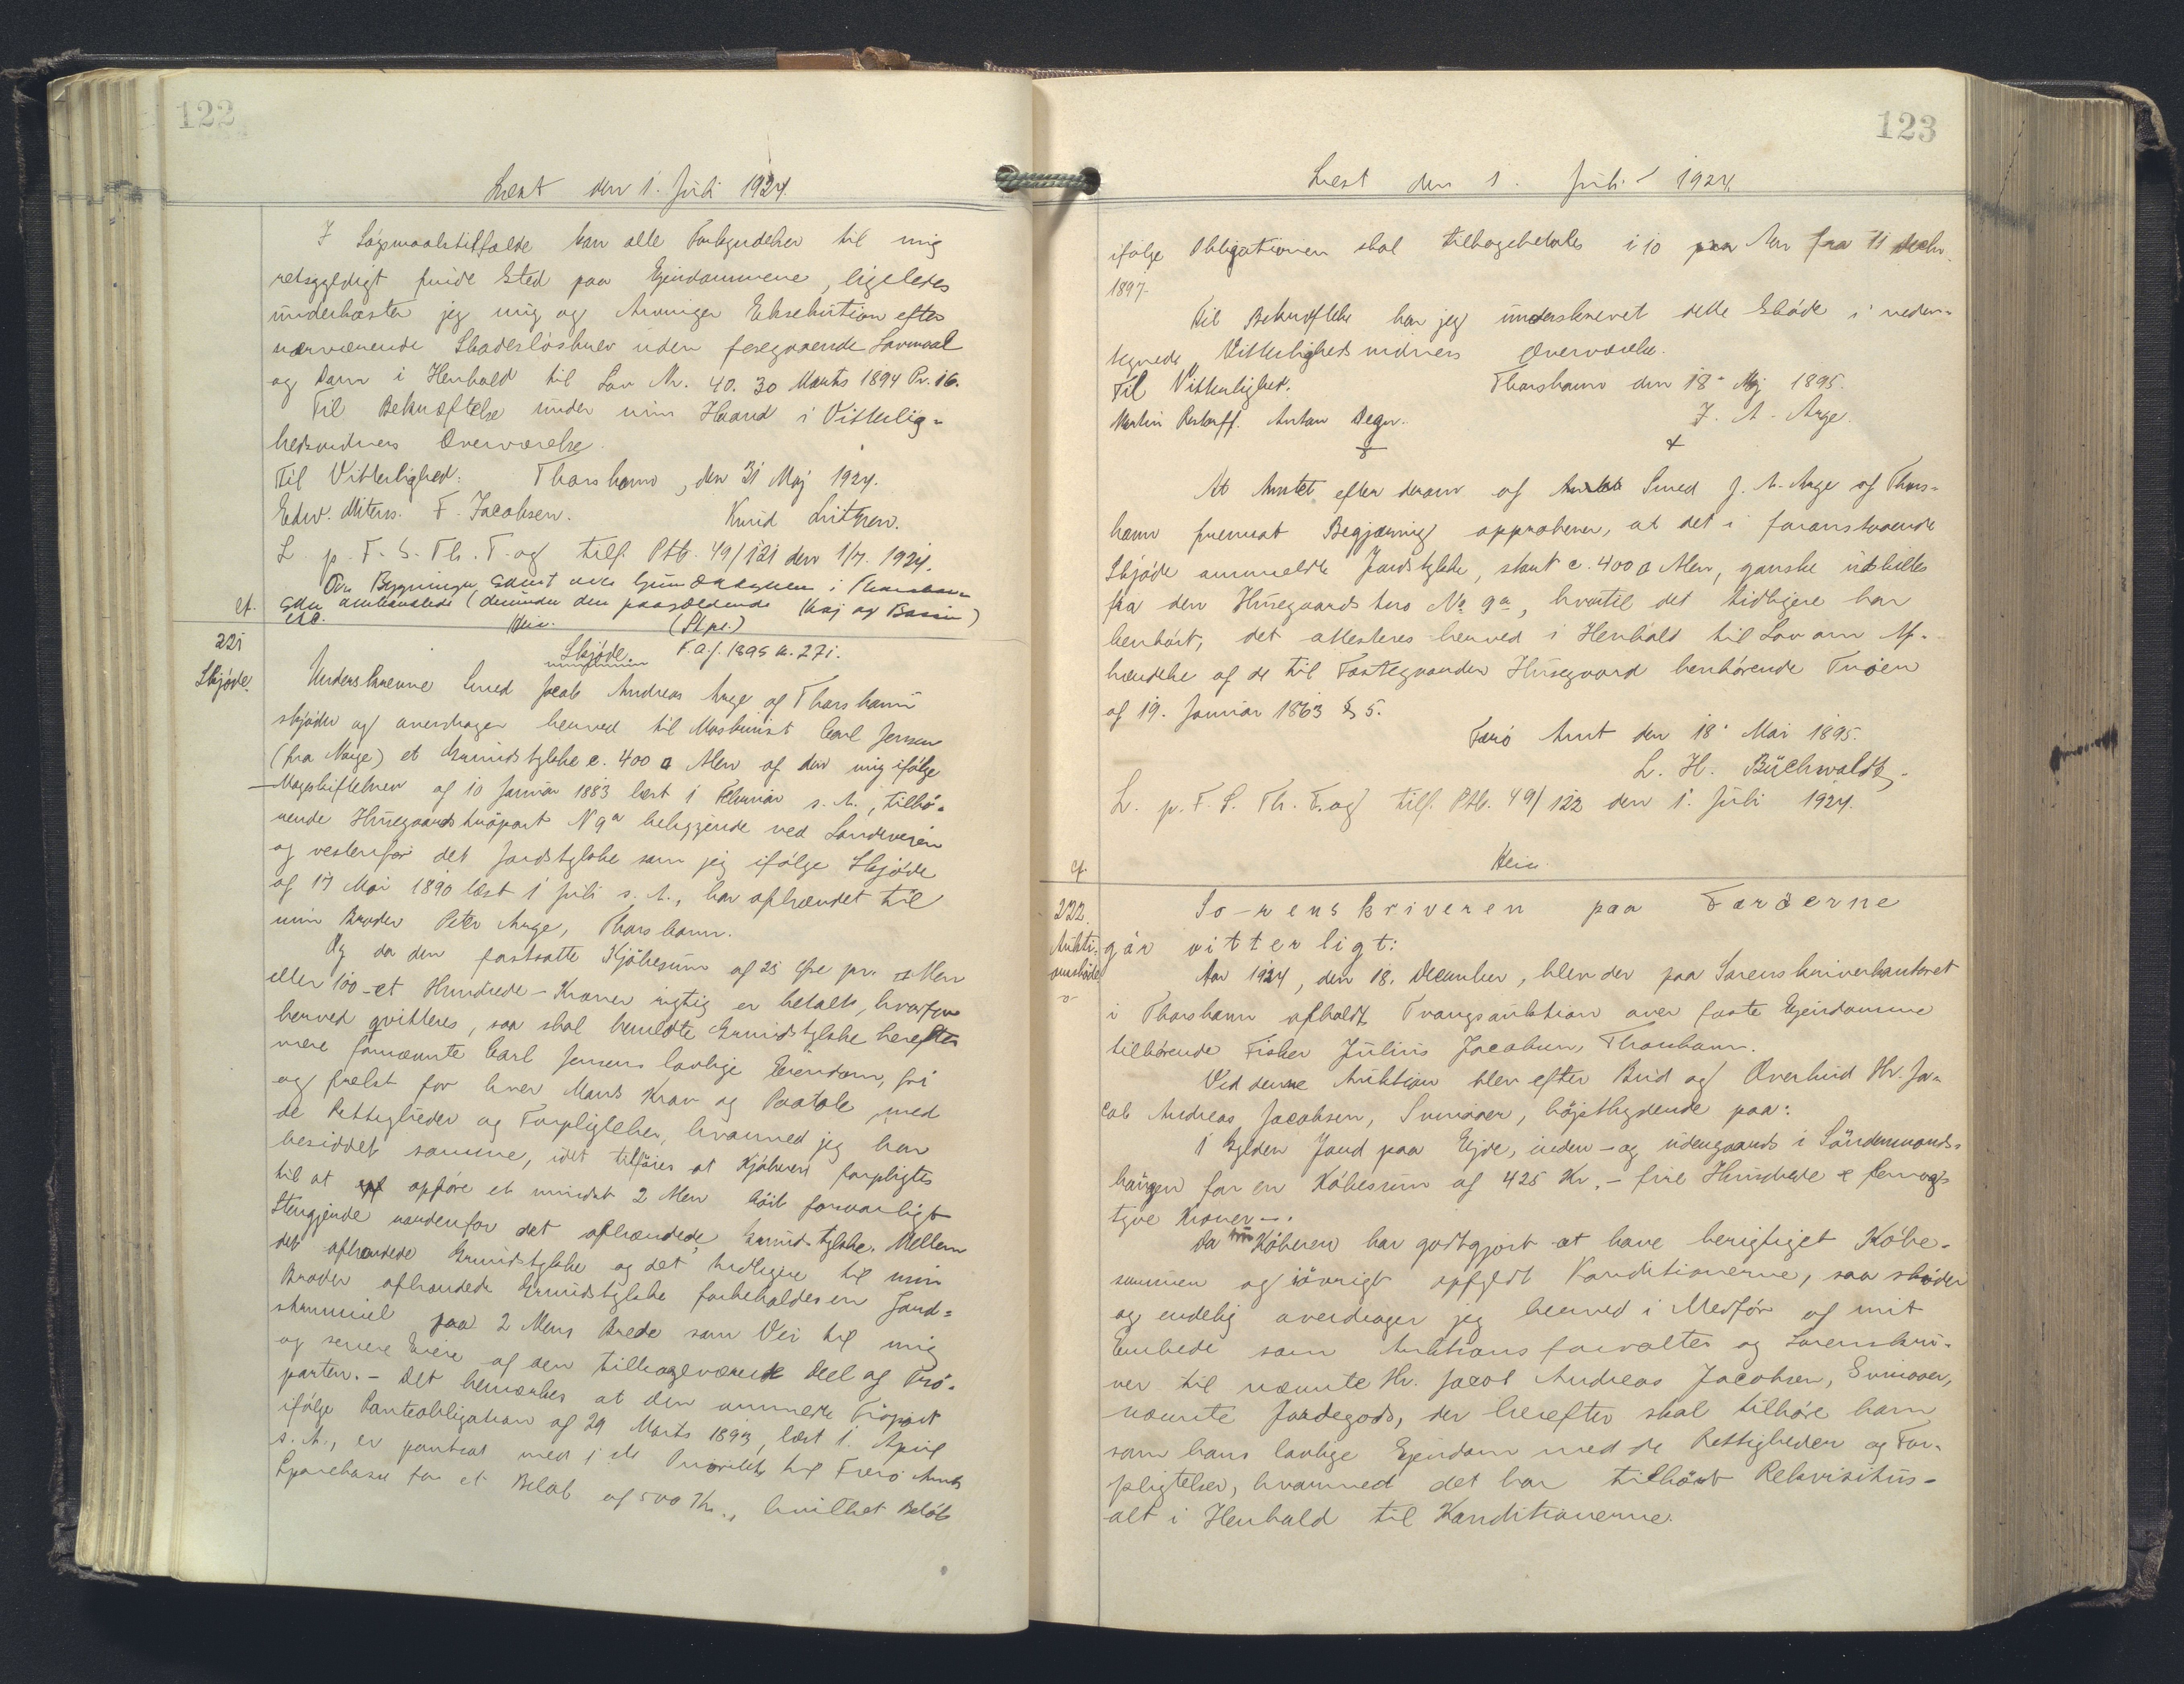 122
Læst den 1. Juli 1924.
I Søgsmaalstilfælde kan alle Forkyndelser til mig
retsgyldigt finde Sted paa Ejendommene, ligeledes
underkaster jeg mig og Arvinger Eksekution efter
nærværende Skadesløsbrev uden foregaaende Lavmaal
og Dom i Henhold til Lov Nr. 40. 30 Marts 1894 Pr. 16.
Til Bekræftelse under min Haand i Vitterlig-
hedsvidners Overværelse.
Til Vitterlighed: Thorshavn, den 31 Maj 1924.
Edw. Mitens. F. Jacobsen. Knud
L. p. F. S. Th. T. og tilf. Ptb. 49/121 den 1/7. 1924.
Om Bygninger samt
(derunder den paagældende Kaj og Bassin)
cf.
221
Skjøde.
Skjøde. F.a.f. 1895 n. 271.
Underskrevne Smed Jacob Andreas Arge af Thorshavn
skjøder og overdrager herved til Maskinist Carl Jensen
(fra Norge) et Grundstykke c. 400 □ Alen af den mig ifølge
Mageskiftebrev af 10 Januar 1883 læst 1 Februar s. A., tilhø-
rende Husegaards trøpart N 9a beliggende ved Landeveien
og vestenfor det Jordstykke som jeg ifølge Skjøde
af 17 Mai 1890 læst 1 Juli s. A., har afhændet til
min Broder Peter Arge, Thorshavn.
Og da den fastsatte Kjøbesum af 25 Øre pr. □ Alen
eller 100 - et Hundrede - Kroner rigtig er betalt, hvorfor
herved qvitteres, saa skal bemeldte Grundstykke herefter
være fornævnte Carl Jensens lovlige Eiendom, fri
og frelst for hver Mands Krav og Paatale, med
de Rettigheder og Forpligtelser, hvormed jeg har
besiddet samme, idet tilføies at Kjøberen forpligtes
til at opføre et mindst 2 Alen høit forsvarligt
Stengjerde nordenfor det afhændede Grund-stykke. Mellem
det afhændede Grundstykke og det tidligere til min
Broder afhændede Grundstykke forbeholdes en Jord-
strimmel paa 2 Alens Brede som Vei til mig
og senere Eiere af den tilbageværende Deel af Trø-
parten. - Det bemærkes at den anmeldte Trøpart
ifølge Panteobligation af 29 Marts 1893, læst 1. April
s. A., er pantsat med 1ste Prioritet til Færø Amts
Sparekasse for et Beløb af 500 Kr., hvilket Beløb
123
Læst den 1. Juli 1924
ifølge Obligationen skal tilbagebetales i 10 paa Aar fra 11 Decbr.
1897.
Til Bekræftelse har jeg underskrevet dette Skøde i neden-
tegnede Vitterlighedsvidners Overværelse.
Til Vitterlighed. Thorshavn den 18. Maj 1895.
Martin Restorff. Anton Degn. J. A. Arge.
At Amtet efter derom af Smed J. A. Arge af Thors-
havn fremsat Begjæring approberer, at det i foranstaaende
Skjøde ommeldte Jordstykke, stort c. 400 □ Alen, ganske udskilles
fra den Husegaards tro No 9a, hvortil det tidligere har
henhørt, det attesteres herved i Henhold til Lov om Af-
hændelse af de til Fæstegaarden Husegaard henhørende Trøer
af 19. Januar 1863 § 5.
Færø Amt den 18. Mai 1895.
L. H. Büchwaldt.
L. p. F. S. Th. T. og tilf. Ptb. 49/122 den 1. Juli 1924.
cf.
222.
Aukti-
onsskøde
So-renskriveren paa Færøerne
gør vitterligt:
Aar 1924, den 18. December, blev der paa Sorenskriverkontoret
i Thorshavn afholdt Tvangsauktion over faste Ejendomme
tilhørende Fisker Julius Jacobsen, Thorshavn.
Ved denne Auktion blev efter Bud og Overbud Hr. Ja-
cob Andreas Jacobsen, Svinaaer, højstbydende paa:
1 Gylden Jord paa Ejde, inden- og udengaards i
for en Købesum af 425 Kr. - fire Hundrede & femog-
tyve Kroner -.
Da Køberen har godtgjort at have berigtiget Købe-
summen og iøvrigt opfyldt Konditionerne, saa skøder
og endelig overdrager jeg herved i Medfør af mit
Embede som Auktionsforvalter og Sorenskri-
ver til nævnte Hr. Jacob Andreas Jacobsen, Svinaaer,
nævnte Jordegods, der herefter skal tilhøre ham
som hans lovlige Ejendom med de Rettigheder og For-
pligtelser, hvormed det har tilhørt Rekvisitus -
alt i Henhold til Konditionerne.